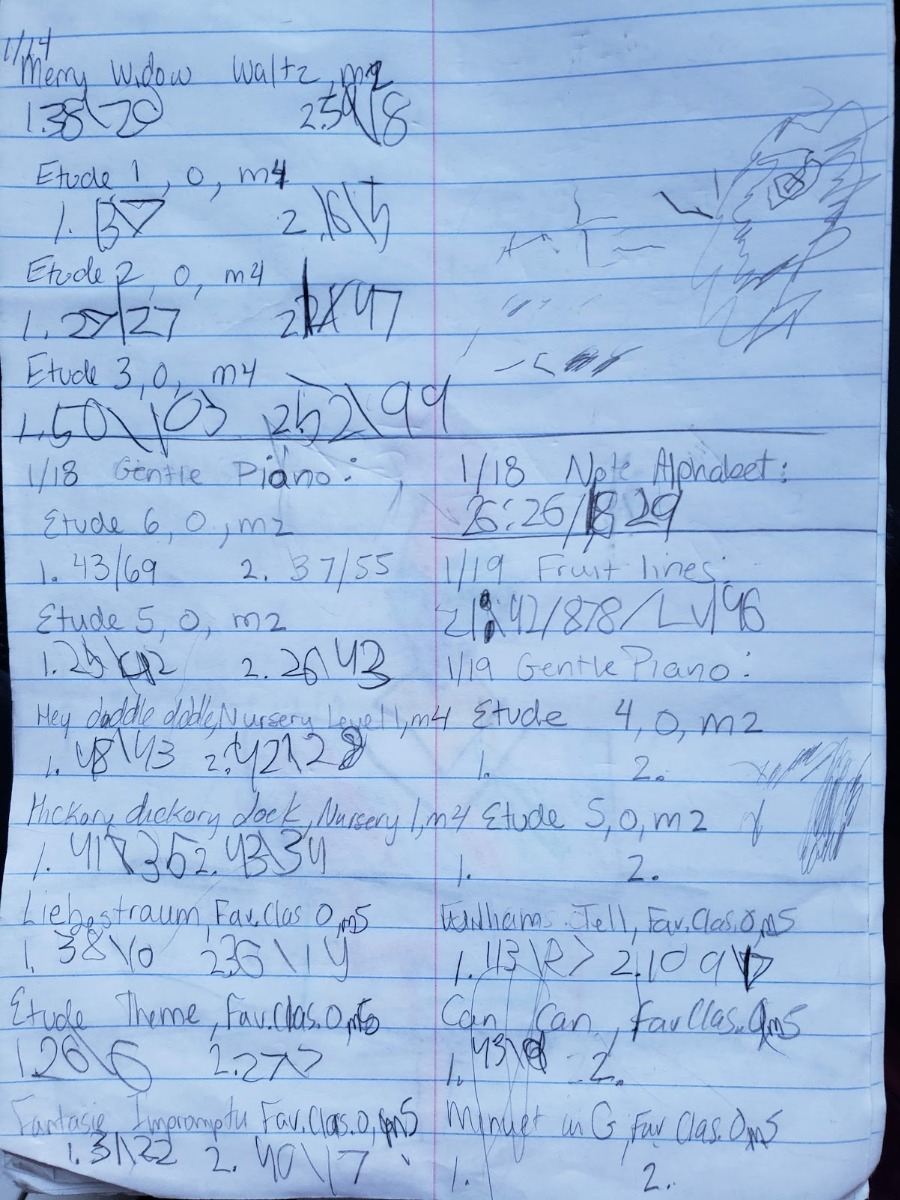 1/14
Merry Widow Waltz, m2
1. 38\20 2. 59\8
Etude 1, 0, m4
1. 2. 16\5
Etude 2, 0, m4
1. 27/27 2.
Etude 3, 0, m4
1. 50\103 2 52\99
1/18 Gentle Piano:
Etude 6, 0, m2
1. 43/69 2. 37/55
Etude 5, 0, m2
1. 25\42 2. 26\43
Hey daddle dddle, Nursery Level 1, m4
1. 48\43 2. 42\28
Hickory dickory dock, Nursery 1, m4
1. 41\35 2. 43\34
Liebestraum, Fav. Clas 0, m5
1. 38\10 2 36\14
Etude Theme, Fav. Clas. 0, m5
1. 26\6 2. 27
Fantasie Impromptu Fav. Clas. 0, m5
1. 31\22 2. 40\17
1/18 Note Alphabet:
26:26/18 29
1/19 Fruit lines:
21:42/878/Lv 46
1/19 Gentle Piano:
Etude 4, 0, m2
1. 2.
Etude 5, 0, m2
1. 2.
Williams Tell, Fav. Clas. 0, m5
1. 113\ 2. 109
Can Can, Fav Clas. 0, m5
1. 43\ 2.
Mynuet in G, Fav Clas. 0, m5
1. 2.